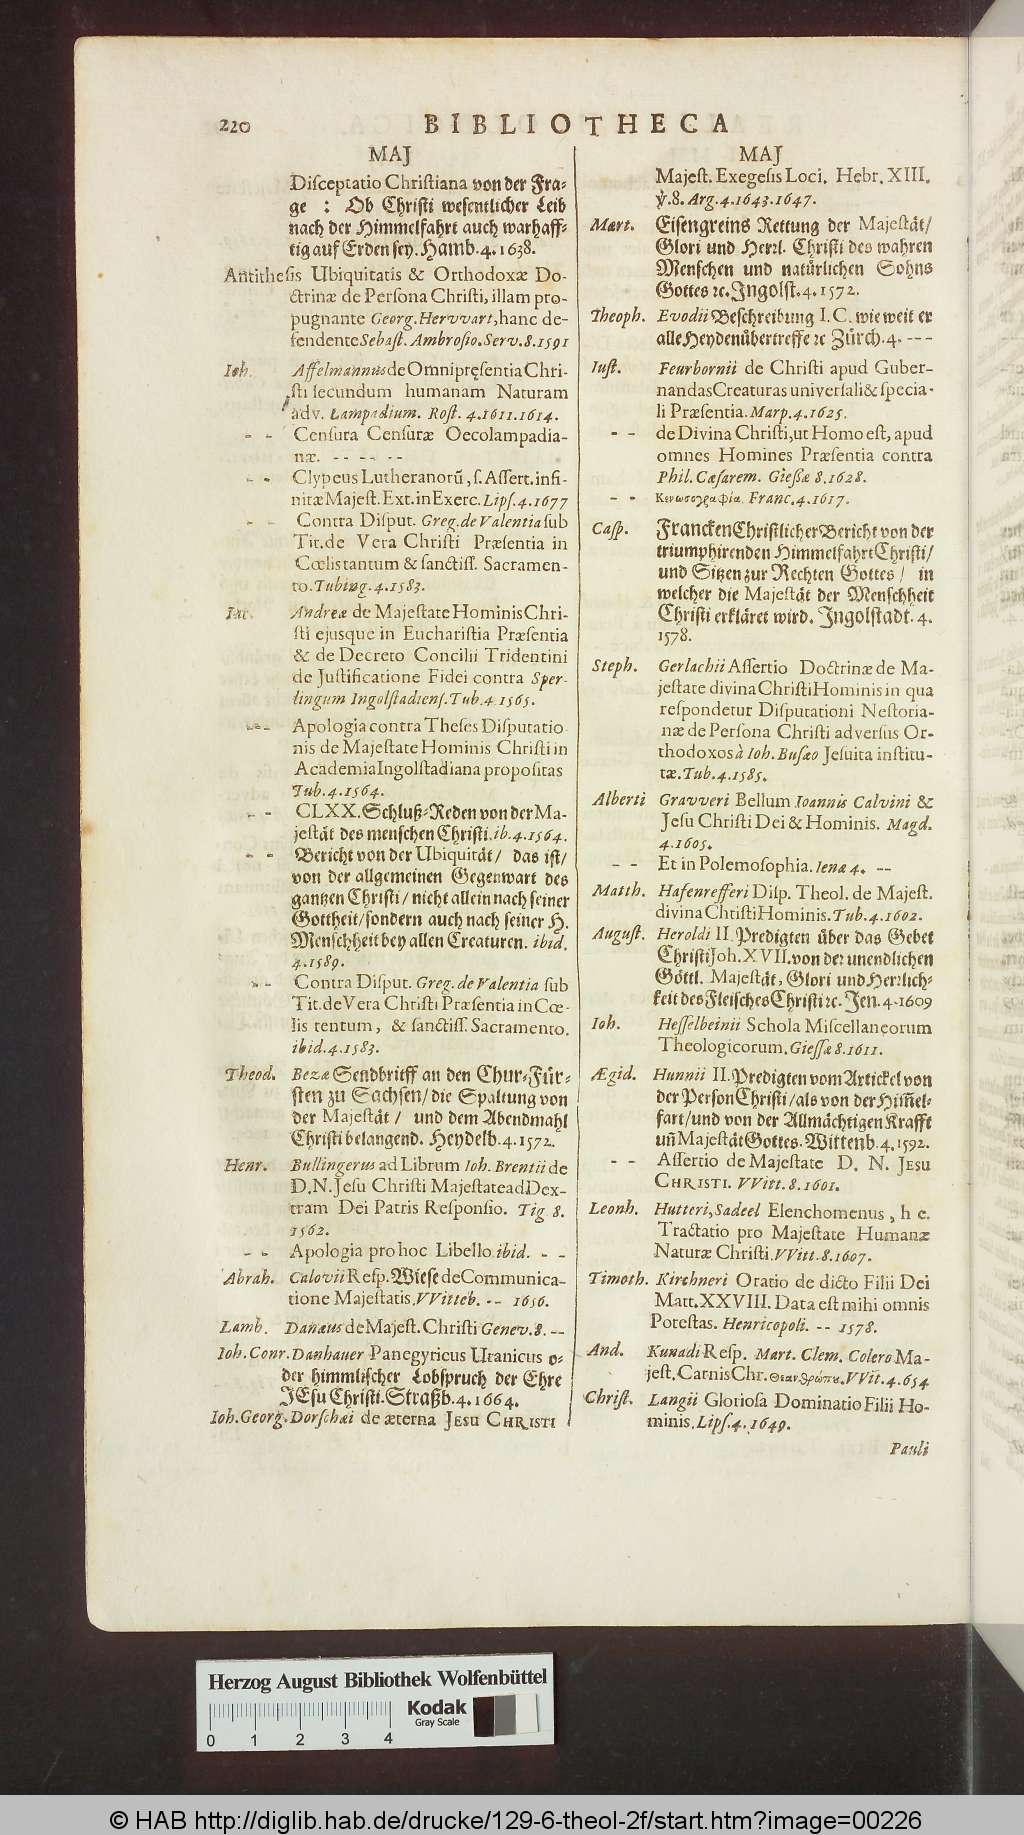 220
BIBLIOTHECA
MAJ
Disceptatio Christiana von der Fra-
ge : Ob Christi wesentlicher Leib
nach der Himmelfahrt auch warhaff-
tig auf Erden sey. Hamb. 4. 1638.
Antithesis Ubiquitatis & Orthodoxæ Do-
ctrinæ de Persona Christi, illam pro-
pugnante Georg. Hervvart, hanc de-
fendente Sebast. Ambrosio. Serv. 8. 1591
Ioh. Affelmannus de Omnipręsentia Chri-
sti secundum humanam Naturam
adv. Lampadium. Rost. 4. 1611. 1614.
- - Censura Censuræ Oecolampadia-
næ. - - - - -
- - Clypeus Lutheranorũ, s. Assert. infi-
nitæ Majest. Ext. in Exerc. Lips. 4. 1677
- - Contra Disput. Greg. de Valentia sub
Tit. de Vera Christi Præsentia in
Cœlis tantum & sanctiss. Sacramen-
to. Tubing. 4. 1583.
Iac. Andreæ de Majestate Hominis Chri-
sti ejusque in Eucharistia Præsentia
& de Decreto Concilii Tridentini
de Justificatione Fidei contra Sper-
lingum Ingolstadiens. Tub. 4 1565.
- - Apologia contra Theses Disputatio
nis de Majestate Hominis Christi in
Academia Ingolstadiana propositas
Tub. 4. 1564.
- - CLXX. Schluß-Reden von der Ma-
jestät des menschen Christi. ib. 4. 1564.
- - Bericht von der Ubiquität / das ist /
von der allgemeinen Gegenwart des
gantzen Christi / nicht allein nach seiner
Gottheit / sondern auch nach seiner H.
Menschheit bey allen Creaturen. ibid.
4. 1589.
- - Contra Disput. Greg. de Valentia sub
Tit. de Vera Christi Præsentia in Cœ-
lis tentum, & sanctiss. Sacramento.
ibid. 4. 1583.
Theod. Bezæ Sendbrieff an den Chur-Für-
sten zu Sachsen / die Spaltung von
der Majestät / und dem Abendmahl
Christi belangend. Heydelb. 4. 1572.
Henr. Bullingerus ad Librum Ioh. Brentii de
D. N. Jesu Christi Majestate ad Dex-
tram Dei Patris Responsio. Tig 8.
1562.
- - Apologia pro hoc Libello. ibid. - -
Abrah. Calovii Resp. Wiese de Communica-
tione Majestatis. VVitteb. - - 1656.
Lamb. Danæus de Majest. Christi Genev. 8. - -
Ioh. Conr. Danhauer Panegyricus Uranicus o-
der himmlischer Lobspruch der Ehre
JEsu Christi. Straßb. 4. 1664.
Ioh. Georg. Dorschæi de æterna JESU CHRISTI
MAJ
Majest. Exegesis Loci. Hebr. XIII.
℣. 8. Arg. 4. 1643. 1647.
Mart. Eisengreins Rettung der Majestät /
Glori und Herrl. Christi des wahren
Menschen und natürlichen Sohns
Gottes ꝛc. Ingolst. 4. 1572.
Theoph. Evodii Beschreibung I. C. wie weit er
alle Heyden übertreffe ꝛc Zürch. 4. - - -
Iust. Feurbornii de Christi apud Guber-
nandas Creaturas universali & specia-
li Præsentia. Marp. 4. 1625.
- - de Divina Christi, ut Homo est, apud
omnes Homines Præsentia contra
Phil. Cæsarem. Gießæ 8. 1628.
- - Κενωσιγραφία. Franc. 4. 1617.
Casp. Francken Christlicher Bericht von der
triumphirenden Himmelfahrt Christi /
und Sitzen zur Rechten Gottes / in
welcher die Majestät der Menschheit
Christi erkläret wird. Ingolstadt. 4.
1578.
Steph. Gerlachii Assertio Doctrinæ de Ma-
jestate divina Christi Hominis in qua
respondetur Disputationi Nestoria-
næ de Persona Christi adversus Or-
thodoxos à Ioh. Busæo Jesuita institu-
tæ. Tub. 4. 1585.
Alberti Gravveri Bellum Ioannis Calvini &
Jesu Christi Dei & Hominis. Magd.
4. 1605.
- - Et in Polemosophia. Ienæ 4. - -
Matth. Hafenrefferi Disp. Theol. de Majest.
divina Christi Hominis. Tub. 4. 1602.
August. Heroldi II. Predigten über das Gebet
Christi Joh. XVII. von der unendlichen
Göttl. Majestät, Glori und Herrlich-
keit des Fleisches Christi ꝛc. Jen. 4. 1609
Ioh. Hesselbeinii Schola Miscellaneorum
Theologicorum. Giessæ 8. 1611.
Ægid. Hunnii II. Predigten vom Artickel von
der Person Christi / als von der Him̃el-
fart / und von der Allmächtigen Krafft
uñ Majestät Gottes. Wittenb. 4. 1592.
- - Assertio de Majestate D. N. JESU
CHRISTI. VVitt. 8. 1601.
Leonh. Hutteri, Sadeel Elenchomenus, h e.
Tractatio pro Majestate Humanæ
Naturæ Christi. VVitt. 8. 1607.
Timoth. Kirchneri Oratio de dicto Filii Dei
Matt. XXVIII. Data est mihi omnis
Potestas. Henricopoli. - - 1578.
And. Kunadi Resp. Mart. Clem. Colero Ma-
jest. Carnis Chr. Θεανθρώπȣ. VVit. 4. 654
Christ. Langii Gloriosa Dominatio Filii Ho-
minis. Lips. 4. 1649.
Pauli
Herzog August Bibliothek Wolfenbüttel
Kodak
Gray Scale
0 1 2 3 4
© HAB http://diglib.hab.de/drucke/129-6-theol-2f/start.htm?image=00226